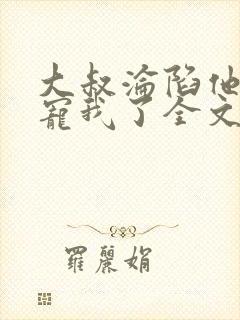 大叔淪陷他
寵我了全文
羅麗娟